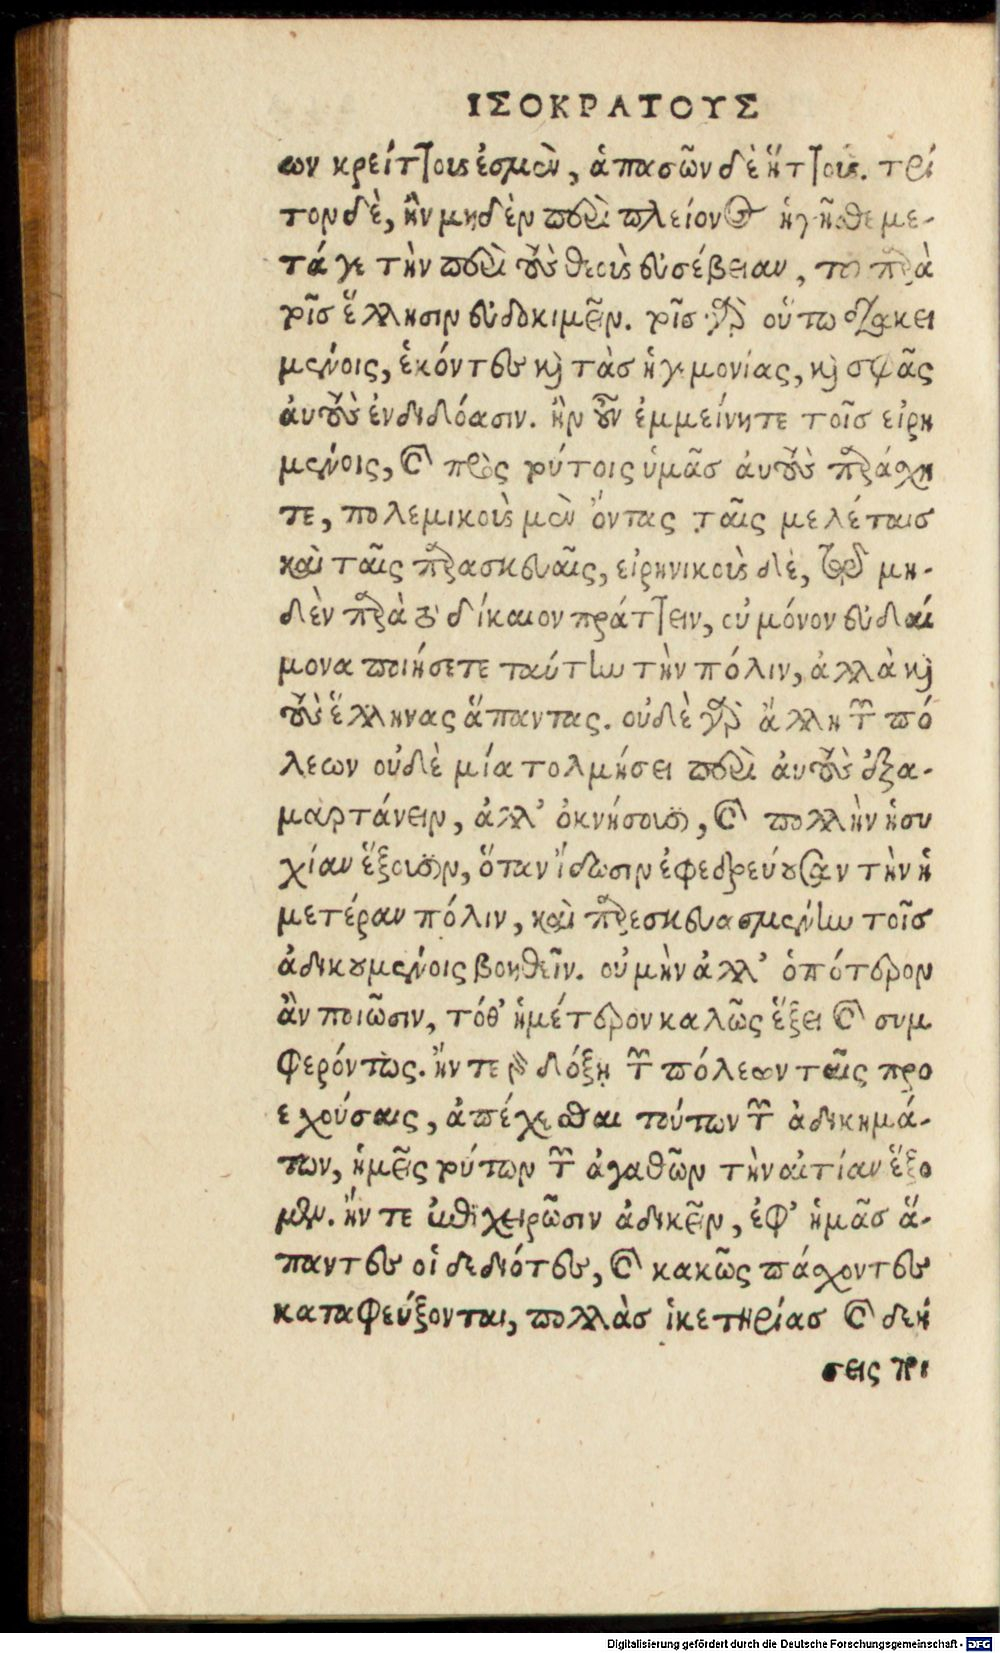 ΙΣΟΚΡΑΤΟΥΣ
ων κρείττους ἐσμὲν, ἁπασῶν δὲ ἥττους. τρί
τον δὲ, ἢν μηδὲν περὶ πλείονος ἡγῆσθε με-
τά γε τὴν περὶ τοὺς θεοὺς εὐσέβειαν, τοῦ παρὰ
τοῖς ἕλλησιν εὐδοκιμεῖν. τοῖς γὰρ οὕτω διακει
μένοις, ἑκόντες καὶ τὰς ἡγεμονίας, καὶ σφᾶς
ἀυτοὺς ἐνδιδόασιν. ἢν οὖν ἐμμείνητε τοῖς εἰρη
μένοις, καὶ πρὸς τούτοις ὑμᾶς ἀυτοὺς παράσχη
τε, πολεμικοὺς μὲν ὄντας ταῖς μελέταις
καὶ ταῖς παρασκευαῖς, εἰρηνικοὺς δὲ, τῷ μη-
δὲν παρὰ τὸ δίκαιον πράττειν, οὐ μόνον εὐδαί
μονα ποιήσετε ταύτην τὴν πόλιν, ἀλλὰ καὶ
τοὺς ἕλληνας ἅπαντας. οὐδὲ γὰρ ἄλλη τῶν πό
λεων οὐδὲ μία τολμήσει περὶ ἀυτοὺς ἐξα-
μαρτάνειν, ἀλλ' ὀκνήσουσι, καὶ πολλὴν ἡσυ
χίαν ἕξουσιν, ὅταν ἴδωσιν ἐφεδρεύουσαν τὴν ἡ
μετέραν πόλιν, καὶ παρεσκευασμένην τοῖς
ἀδικουμένοις βοηθεῖν. οὐ μὴν ἀλλ' ὁπότερον
ἂν ποιῶσιν, τόθ' ἡμέτερον καλῶς ἕξει καὶ συμ
φερόντως. ἤν τε γὰρ δόξῃ τῶν πόλεων ταῖς προ
εχούσαις, ἀπέχεσθαι τούτων τῶν ἀδικημά-
των, ἡμεῖς τούτων τῶν ἀγαθῶν τὴν αἰτίαν ἕξο
μεν. ἤν τε ἐπιχειρῶσιν ἀδικεῖν, ἐφ' ἡμᾶς ἅ-
παντες οἱ δεδιότες, καὶ κακῶς πάσχοντες
καταφεύξονται, πολλὰς ἱκετηρίας καὶ δεή
σεις ποι
Digitalisierung gefördert durch die Deutsche Forschungsgemeinschaft - DFG